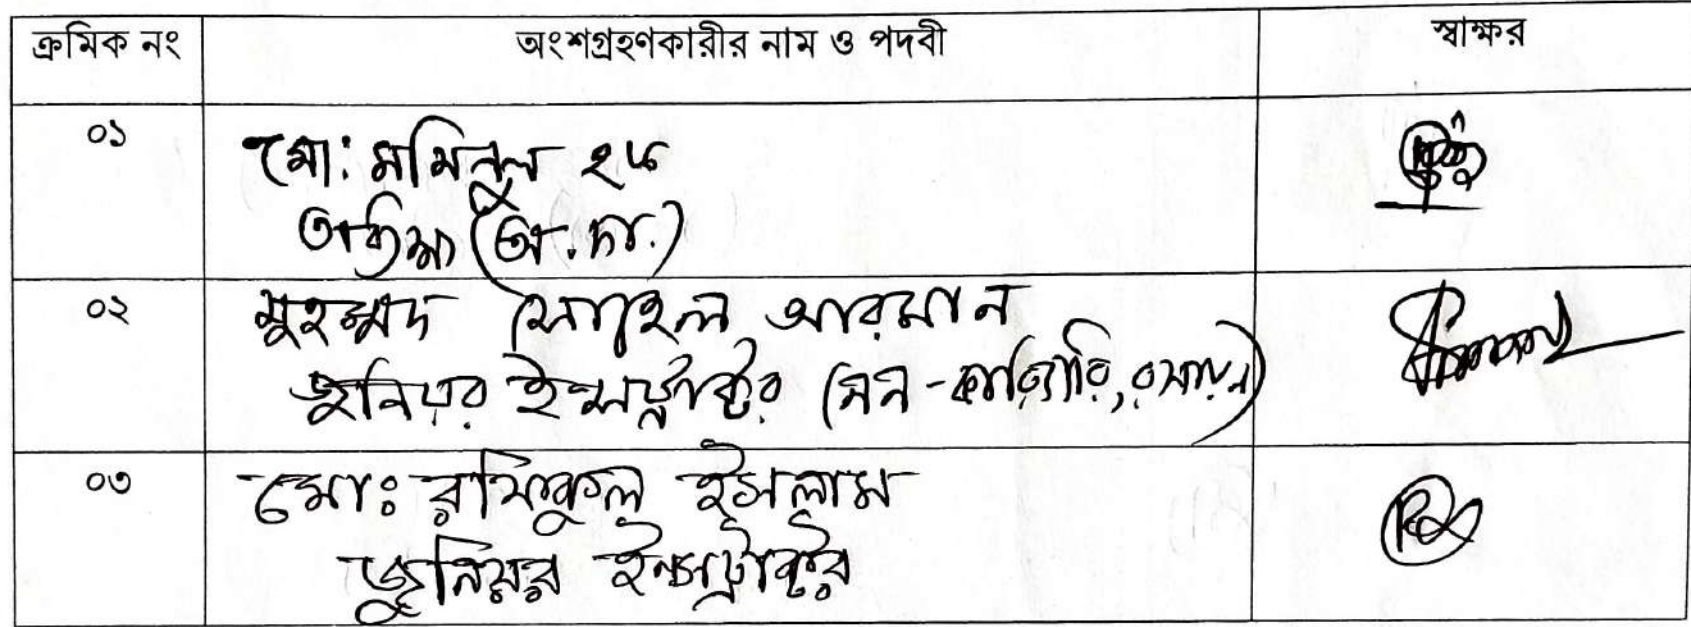 ক্রমিক নং অংশগ্রহণকারীর নাম ও পদবী স্বাক্ষর
০১ মো: মমিনুল হক
(অ.দা.)
০২ মুহম্মদ সোহেল আরমান
জুনিয়র ইন্সট্রাক্টর (নন-কারিগরি, রসায়ন)
০৩ মোঃ রফিকুল ইসলাম
জুনিয়র ইন্সট্রাক্টর